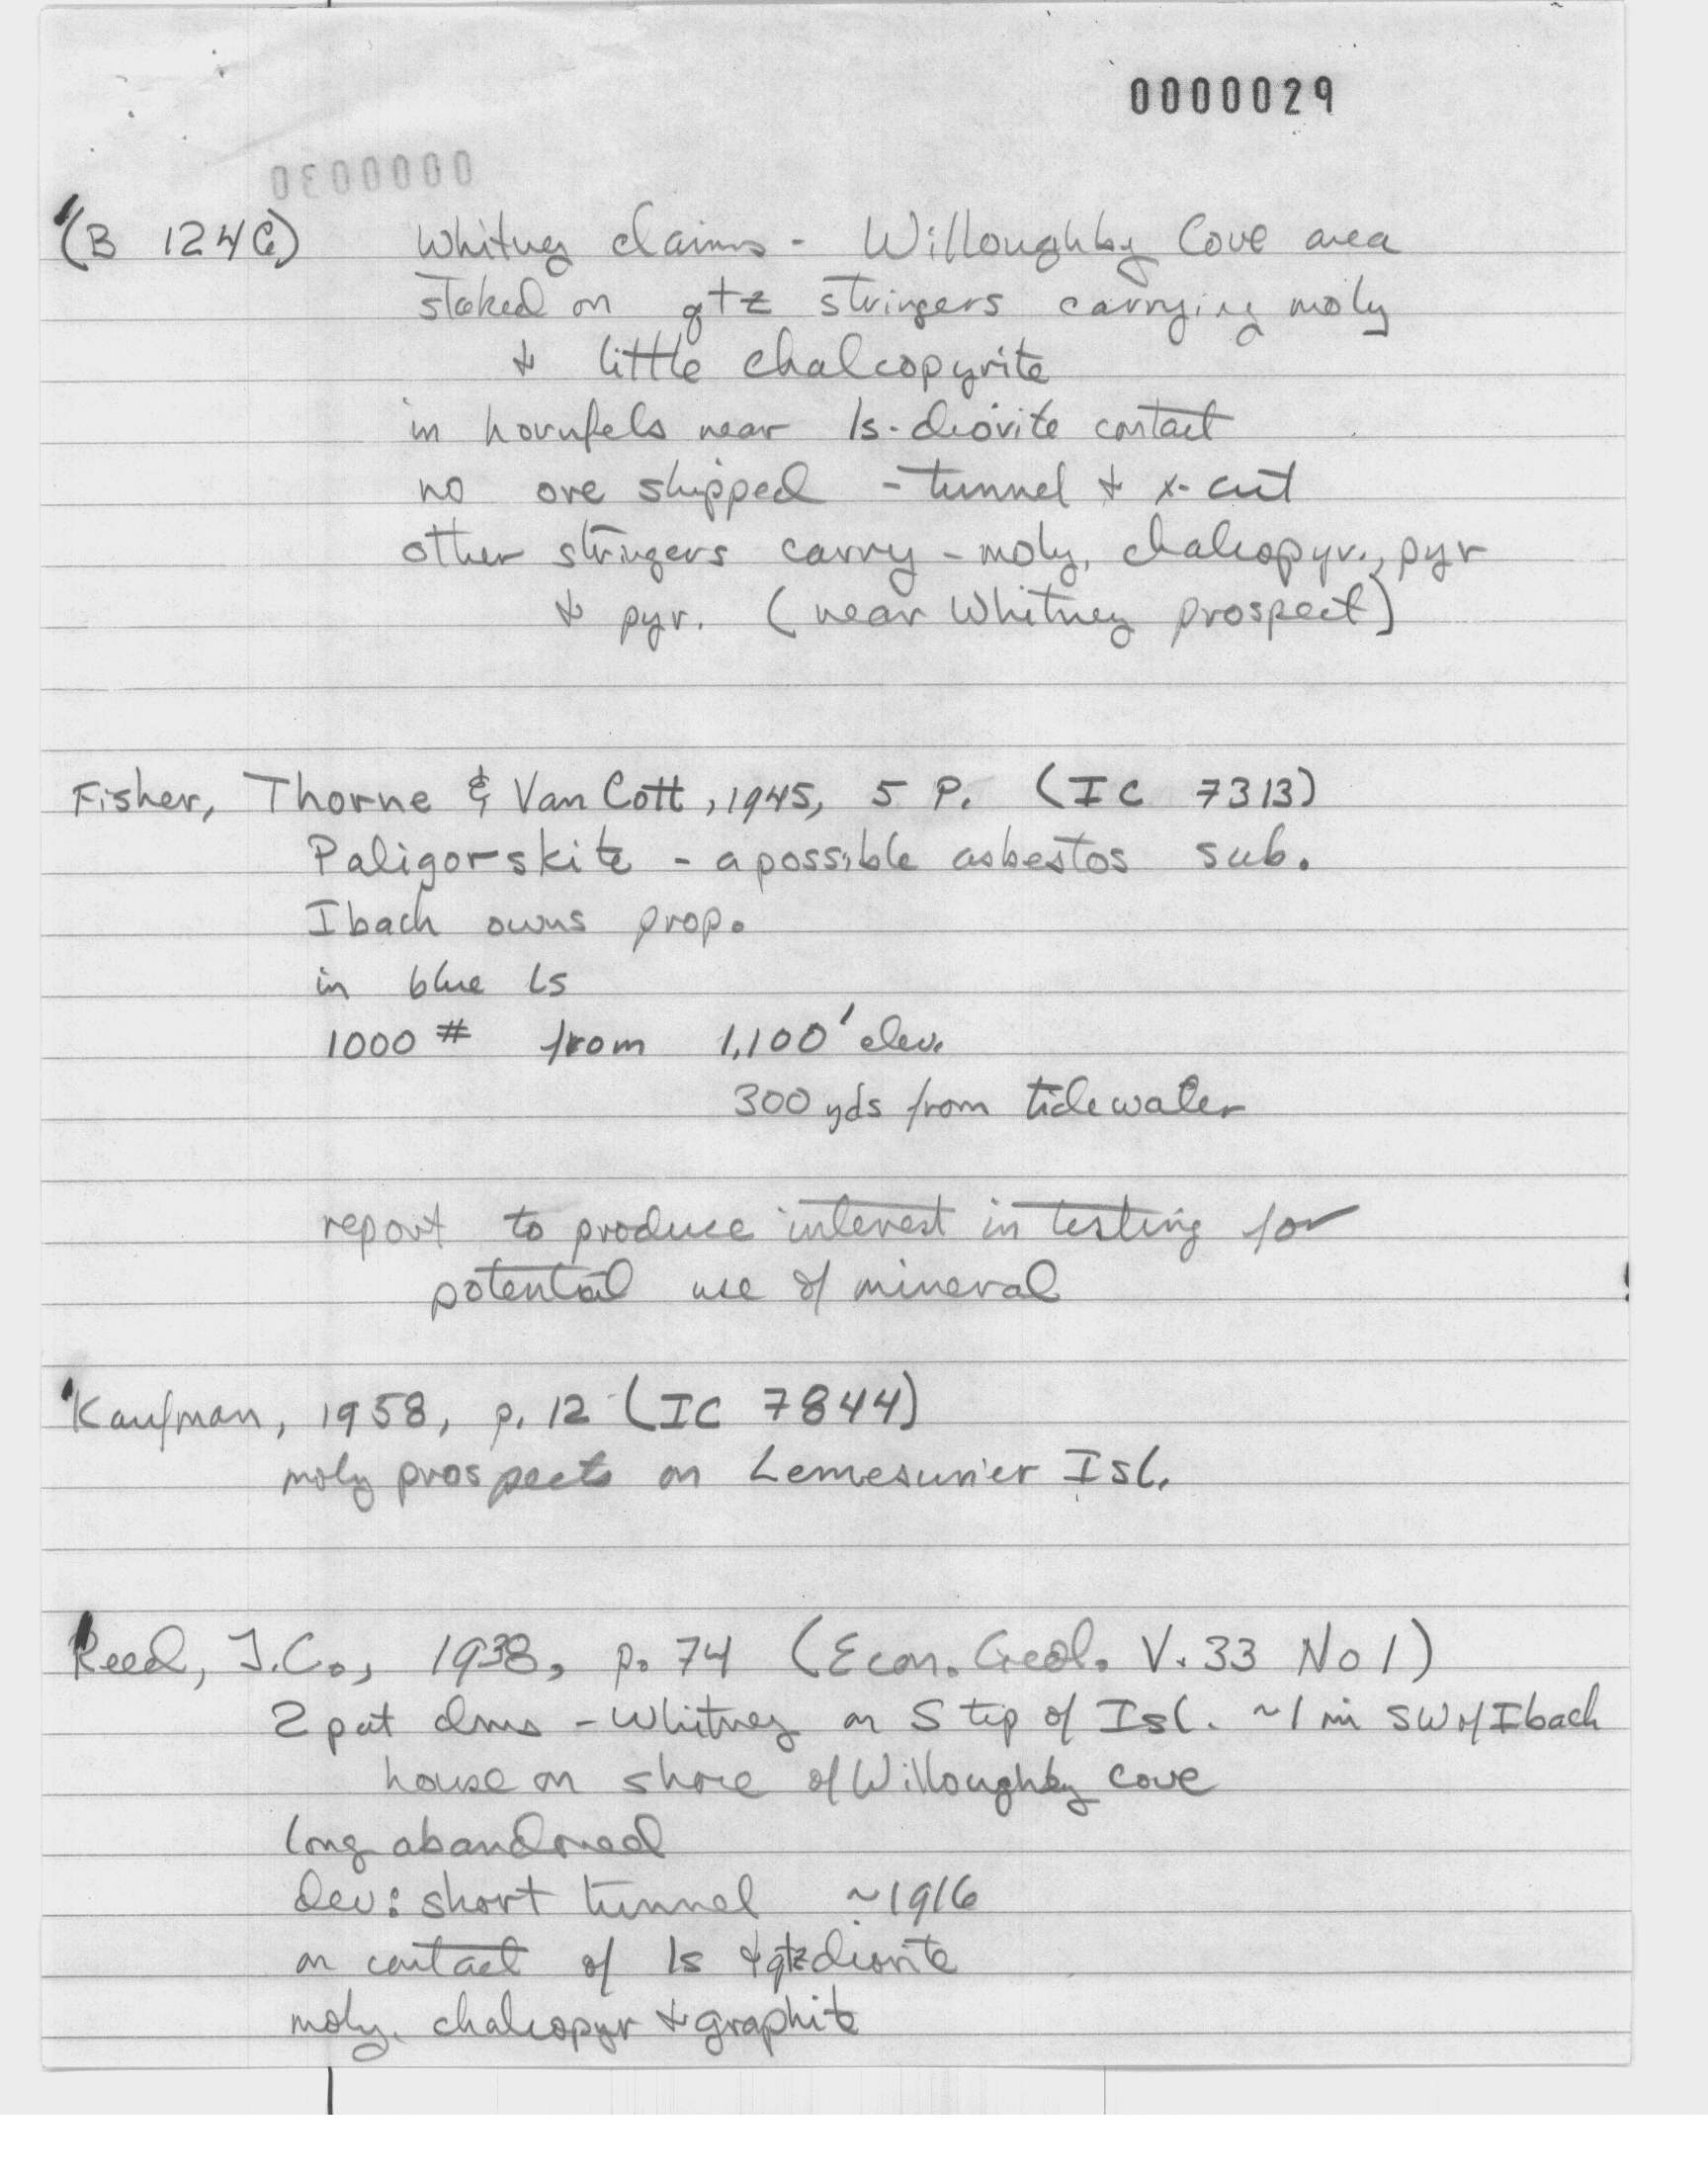 0000029
0000030
(B 1246) Whitney claims - Willoughby Cove area
staked on qtz stringers carrying moly
& little chalcopyrite
in hornfels near ls-diorite contact
no ore shipped - tunnel & x-cut
other stringers carry - moly, chalcopyr., pyr
& pyr. (near Whitney prospect)
Fisher, Thorne & Van Cott, 1945, 5 P. (IC 7313)
Paligorskite - a possible asbestos sub.
Ibach owns prop.
in blue ls
1000 # from 1,100' elev.
300 yds from tidewater
report to produce interest in testing for
potential use of mineral
Kaufman, 1958, p. 12 (IC 7844)
moly prospects on Lemesurier Isl.
Reed, J.C., 1938, p. 74 (Econ. Geol. V. 33 No 1)
2 pat clms - Whitney on S tip of Isl. ~1 mi SW of Ibach
house on shore of Willoughby cove
long abandoned
dev: short tunnel ~1916
on contact of ls & qtz diorite
moly, chalcopyr & graphite